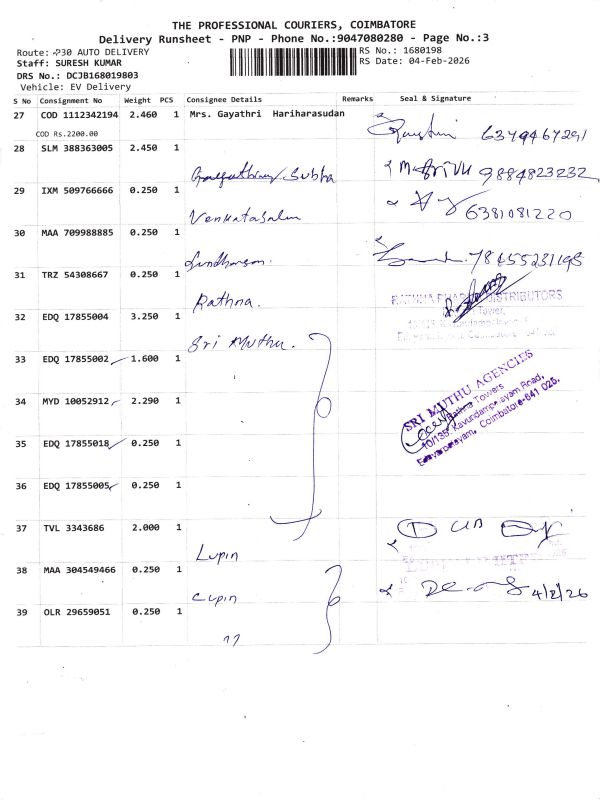 THE PROFESSIONAL COURIERS, COIMBATORE
Delivery Runsheet - PNP - Phone No.:9047080280 - Page No.:3
Route: P30 AUTO DELIVERY
RS No.: 1680198
Staff: SURESH KUMAR
RS Date: 04-Feb-2026
DRS No.: DCJB168019803
Vehicle: EV Delivery
S No Consignment No Weight PCS Consignee Details Remarks Seal & Signature
27 COD 1112342194 2.460 1 Mrs. Gayathri Hariharasudan
COD Rs.2200.00
6379467291
28 SLM 388363005 2.450 1
Subha
9884823232
29 IXM 509766666 0.250 1
Venkatasalm
6381081220
30 MAA 709988885 0.250 1
31 TRZ 54308667 0.250 1
Rathna.
DISTRIBUTORS
Tower,
32 EDQ 17855004 3.250 1
Sri Muthu.
33 EDQ 17855002 1.600 1
34 MYD 10052912 2.290 1
SRI MUTHU AGENCIES
Rathna Towers
10/135, Kavundampalayam Road,
Edayarpalayam, Coimbatore-641 025.
35 EDQ 17855018 0.250 1
36 EDQ 17855005 0.250 1
37 TVL 3343686 2.000 1
Lupin
38 MAA 304549466 0.250 1
Lupin
4/2/26
39 OLR 29659051 0.250 1
"